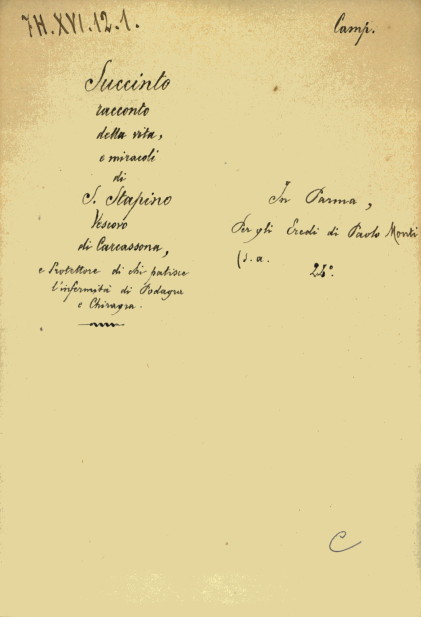 7H.XVI.12.1.
Camp.
Succinto
racconto
della vita,
e miracoli
di
S. Stapino
Vescovo
di Carcassona,
e Protettore di chi patisce
l'infermità di Podagra
e Chiragra.
In Parma,
Per gli Eredi di Paolo Monti
(s.a.
24°.
C